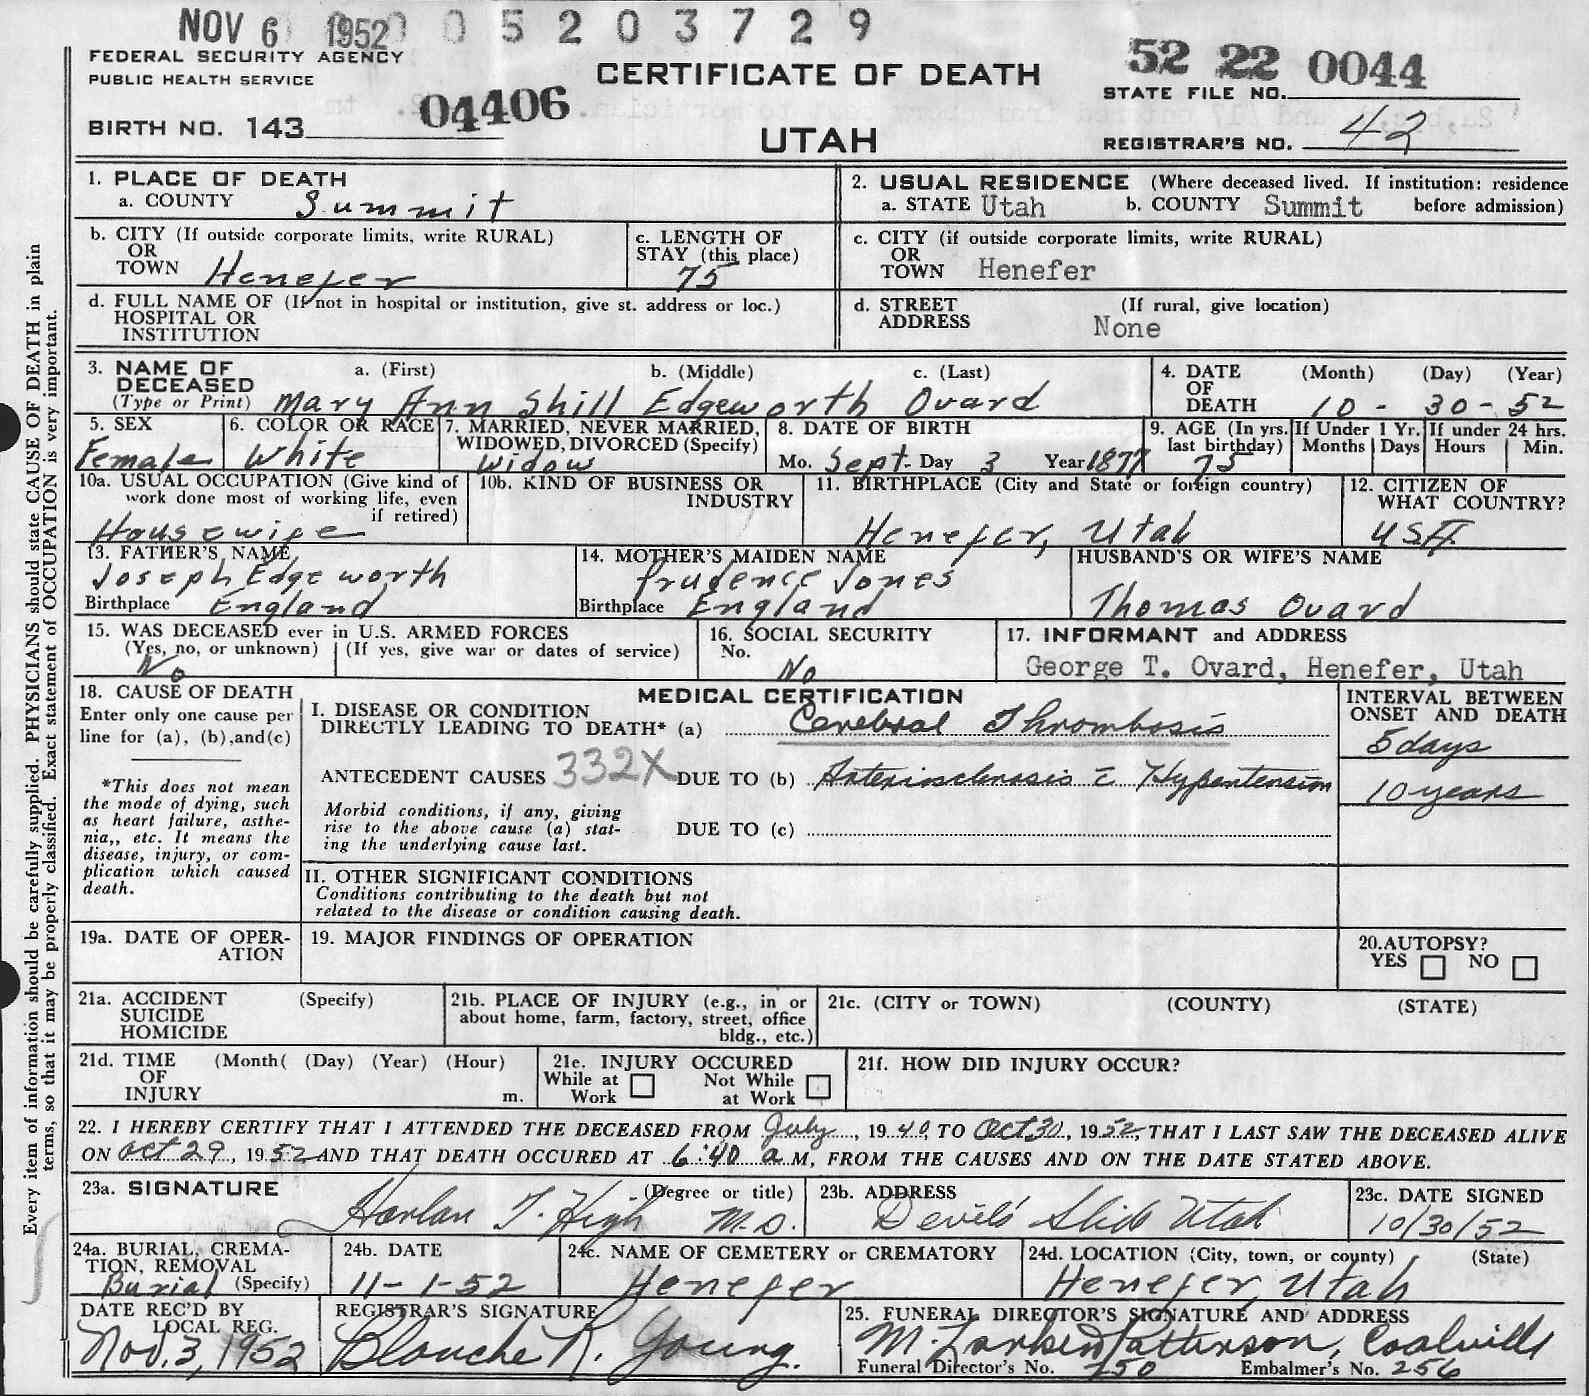 NOV 6 1952 0 5 2 0 3 7 2 9
FEDERAL SECURITY AGENCY
PUBLIC HEALTH SERVICE
BIRTH NO. 143
04406
CERTIFICATE OF DEATH
UTAH
52 22 0044
STATE FILE NO.
REGISTRAR'S NO. 42
Every item of information should be carefully supplied. PHYSICIANS should state CAUSE OF DEATH in plain
terms, so that it may be properly classified. Exact statement of OCCUPATION is very important.
1. PLACE OF DEATH
a. COUNTY Summit
2. USUAL RESIDENCE (Where deceased lived. If institution: residence
a. STATE Utah b. COUNTY Summit before admission)
b. CITY (If outside corporate limits, write RURAL)
OR
TOWN Henefer
c. LENGTH OF
STAY (this place)
75
c. CITY (if outside corporate limits, write RURAL)
OR
TOWN Henefer
d. FULL NAME OF (If not in hospital or institution, give st. address or loc.)
HOSPITAL OR
INSTITUTION
d. STREET (If rural, give location)
ADDRESS None
3. NAME OF a. (First) b. (Middle) c. (Last)
DECEASED
(Type or Print) Mary Ann Shill Edgeworth Ovard
4. DATE (Month) (Day) (Year)
OF
DEATH 10 - 30 - 52
5. SEX
Female
6. COLOR OR RACE
White
7. MARRIED, NEVER MARRIED,
WIDOWED, DIVORCED (Specify)
Widow
8. DATE OF BIRTH
Mo. Sept. Day 3 Year 1877
9. AGE (In yrs.
last birthday)
75
If Under 1 Yr.
Months Days
If under 24 hrs.
Hours Min.
10a. USUAL OCCUPATION (Give kind of
work done most of working life, even
if retired)
Housewife
10b. KIND OF BUSINESS OR
INDUSTRY
11. BIRTHPLACE (City and State or foreign country)
Henefer, Utah
12. CITIZEN OF
WHAT COUNTRY?
USA
13. FATHER'S NAME
Joseph Edgeworth
Birthplace England
14. MOTHER'S MAIDEN NAME
Prudence Jones
Birthplace England
HUSBAND'S OR WIFE'S NAME
Thomas Ovard
15. WAS DECEASED ever in U.S. ARMED FORCES
(Yes, no, or unknown) (If yes, give war or dates of service)
No
16. SOCIAL SECURITY
No.
No
17. INFORMANT and ADDRESS
George T. Ovard, Henefer, Utah
18. CAUSE OF DEATH
Enter only one cause per
line for (a), (b),and(c)
*This does not mean
the mode of dying, such
as heart failure, asthe-
nia,, etc. It means the
disease, injury, or com-
plication which caused
death.
MEDICAL CERTIFICATION
I. DISEASE OR CONDITION
DIRECTLY LEADING TO DEATH* (a) Cerebral Thrombosis
ANTECEDENT CAUSES 332X DUE TO (b) Arteriosclerosis c̄ Hypertension
Morbid conditions, if any, giving
rise to the above cause (a) stat-
ing the underlying cause last.
DUE TO (c)
INTERVAL BETWEEN
ONSET AND DEATH
5 days
10 years
II. OTHER SIGNIFICANT CONDITIONS
Conditions contributing to the death but not
related to the disease or condition causing death.
19a. DATE OF OPER-
ATION
19. MAJOR FINDINGS OF OPERATION
20.AUTOPSY?
YES NO
21a. ACCIDENT (Specify)
SUICIDE
HOMICIDE
21b. PLACE OF INJURY (e.g., in or
about home, farm, factory, street, office
bldg., etc.)
21c. (CITY or TOWN) (COUNTY) (STATE)
21d. TIME (Month( (Day) (Year) (Hour)
OF
INJURY m.
21e. INJURY OCCURED
While at Not While
Work at Work
21f. HOW DID INJURY OCCUR?
22. I HEREBY CERTIFY THAT I ATTENDED THE DECEASED FROM July, 1940, TO Oct 30, 1952, THAT I LAST SAW THE DECEASED ALIVE
ON Oct 29, 1952 AND THAT DEATH OCCURED AT 6:40 a M, FROM THE CAUSES AND ON THE DATE STATED ABOVE.
23a. SIGNATURE (Degree or title)
Harlan T. High M.D.
23b. ADDRESS
Devils Slide Utah
23c. DATE SIGNED
10/30/52
24a. BURIAL, CREMA-
TION, REMOVAL
Burial (Specify)
24b. DATE
11-1-52
24c. NAME OF CEMETERY or CREMATORY
Henefer
24d. LOCATION (City, town, or county) (State)
Henefer, Utah
DATE REC'D BY
LOCAL REG.
Nov. 3, 1952
REGISTRAR'S SIGNATURE
Blanche R. Young.
25. FUNERAL DIRECTOR'S SIGNATURE AND ADDRESS
M. Larkin Patterson, Coalville
Funeral Director's No. 250 Embalmer's No. 256